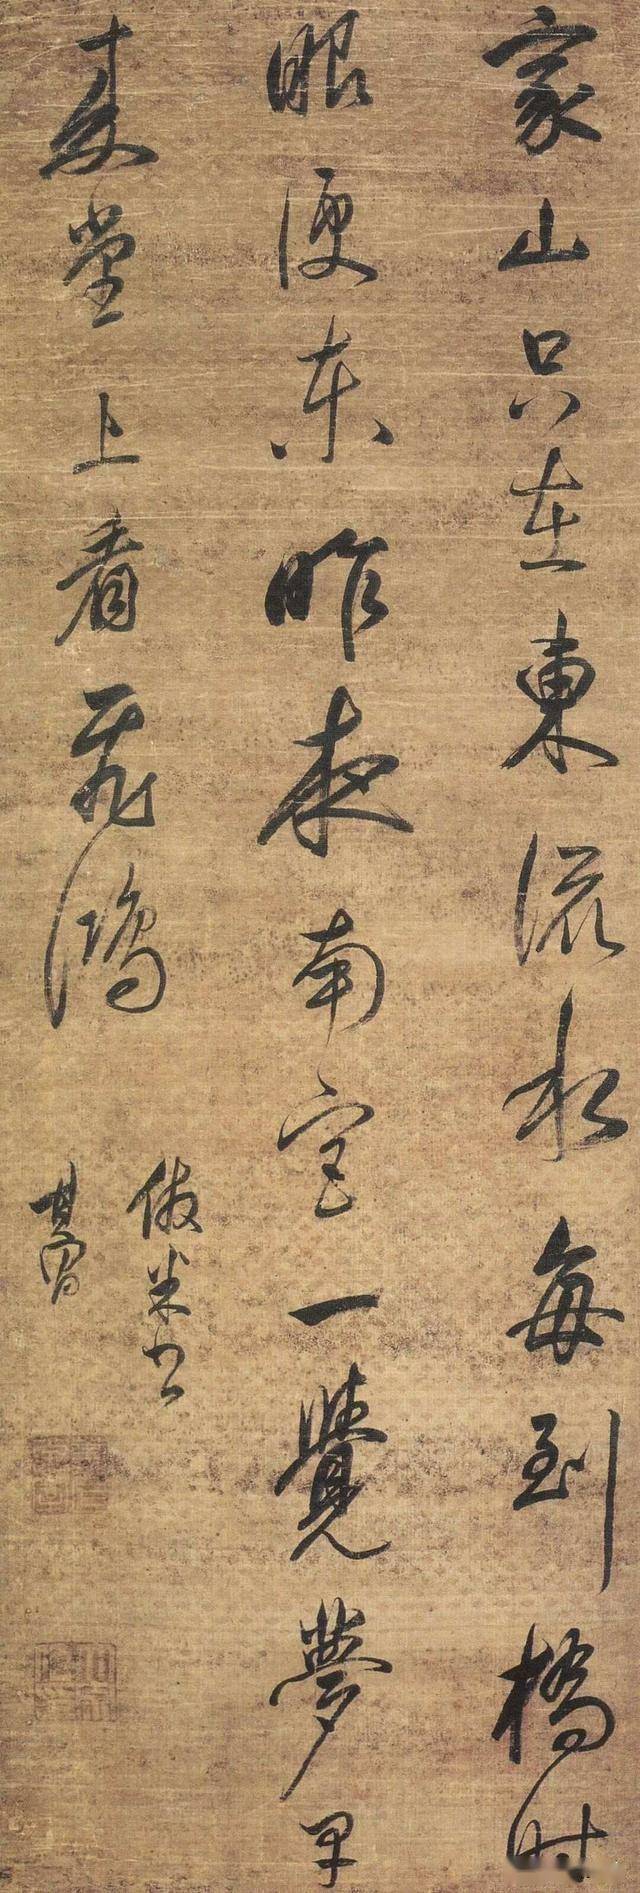 家山只在東流水每到橋时
眼便東昨夜南宮一覺夢早
堂上看飛鴻
倣米書
其昌